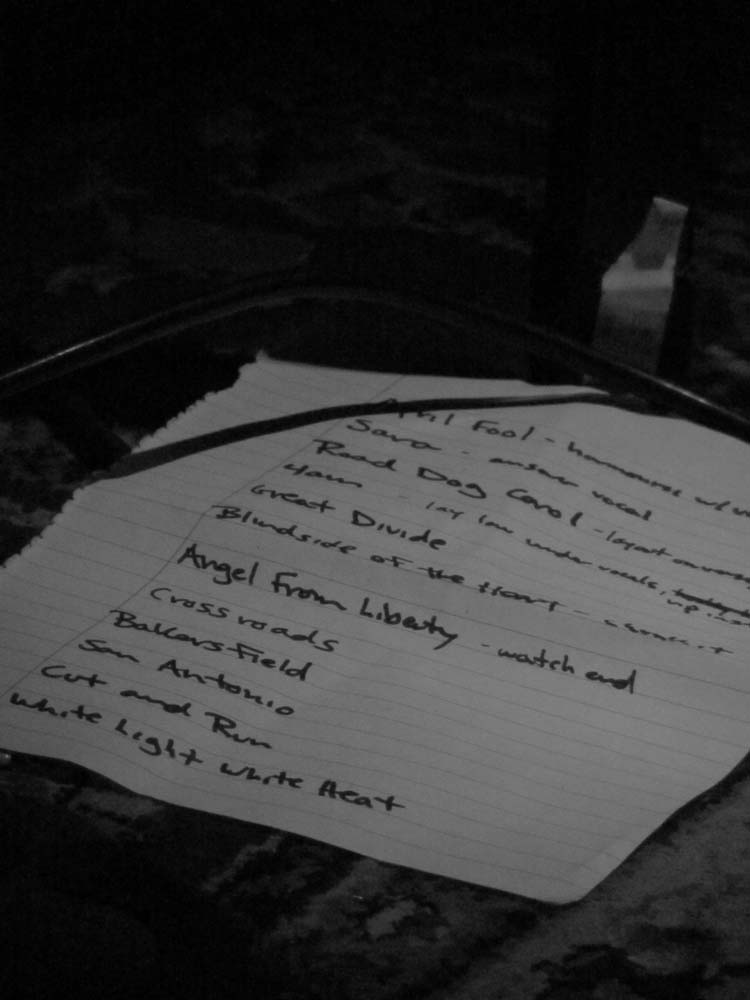 April Fool - harmonies
Sara - answer vocal
Road Dog Carol - layout on
Yawn - lay low under vocals,
Great Divide
Blindside of the Heart -
Angel From Liberty - watch end
Crossroads
Bakersfield
San Antonio
Cut and Run
White Light White Heat